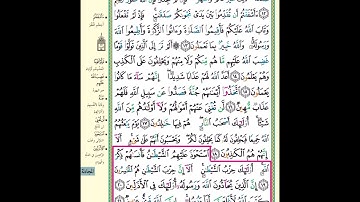 ءَأَشْفَقْتُمْ أَن تُقَدِّمُوا۟ بَيْنَ يَدَىْ نَجْوَىٰكُمْ صَدَقَٰتٍ ۚ فَإِذْ لَمْ تَفْعَلُوا۟
وَتَابَ ٱللَّهُ عَلَيْكُمْ فَأَقِيمُوا۟ ٱلصَّلَوٰةَ وَءَاتُوا۟ ٱلزَّكَوٰةَ وَأَطِيعُوا۟ ٱللَّهَ
وَرَسُولَهُۥ ۚ وَٱللَّهُ خَبِيرٌۢ بِمَا تَعْمَلُونَ ۝١٣ أَلَمْ تَرَ إِلَى ٱلَّذِينَ تَوَلَّوْا۟ قَوْمًا
غَضِبَ ٱللَّهُ عَلَيْهِم مَّا هُم مِّنكُمْ وَلَا مِنْهُمْ وَيَحْلِفُونَ عَلَى ٱلْكَذِبِ
وَهُمْ يَعْلَمُونَ ۝١٤ أَعَدَّ ٱللَّهُ لَهُمْ عَذَابًا شَدِيدًا ۖ إِنَّهُمْ سَآءَ مَا كَانُوا۟
يَعْمَلُونَ ۝١٥ ٱتَّخَذُوٓا۟ أَيْمَٰنَهُمْ جُنَّةً فَصَدُّوا۟ عَن سَبِيلِ ٱللَّهِ فَلَهُمْ
عَذَابٌ مُّهِينٌ ۝١٦ لَّن تُغْنِىَ عَنْهُمْ أَمْوَٰلُهُمْ وَلَآ أَوْلَٰدُهُم مِّنَ ٱللَّهِ
شَيْـًٔا ۚ أُو۟لَٰٓئِكَ أَصْحَٰبُ ٱلنَّارِ ۖ هُمْ فِيهَا خَٰلِدُونَ ۝١٧ يَوْمَ يَبْعَثُهُمُ
ٱللَّهُ جَمِيعًا فَيَحْلِفُونَ لَهُۥ كَمَا يَحْلِفُونَ لَكُمْ ۖ وَيَحْسَبُونَ أَنَّهُمْ عَلَىٰ شَىْءٍ ۚ أَلَآ
إِنَّهُمْ هُمُ ٱلْكَٰذِبُونَ ۝١٨ ٱسْتَحْوَذَ عَلَيْهِمُ ٱلشَّيْطَٰنُ فَأَنسَىٰهُمْ ذِكْرَ
ٱللَّهِ ۚ أُو۟لَٰٓئِكَ حِزْبُ ٱلشَّيْطَٰنِ ۚ أَلَآ إِنَّ حِزْبَ ٱلشَّيْطَٰنِ هُمُ ٱلْخَٰسِرُونَ
۝١٩ إِنَّ ٱلَّذِينَ يُحَآدُّونَ ٱللَّهَ وَرَسُولَهُۥٓ أُو۟لَٰٓئِكَ فِى ٱلْأَذَلِّينَ ۝٢٠